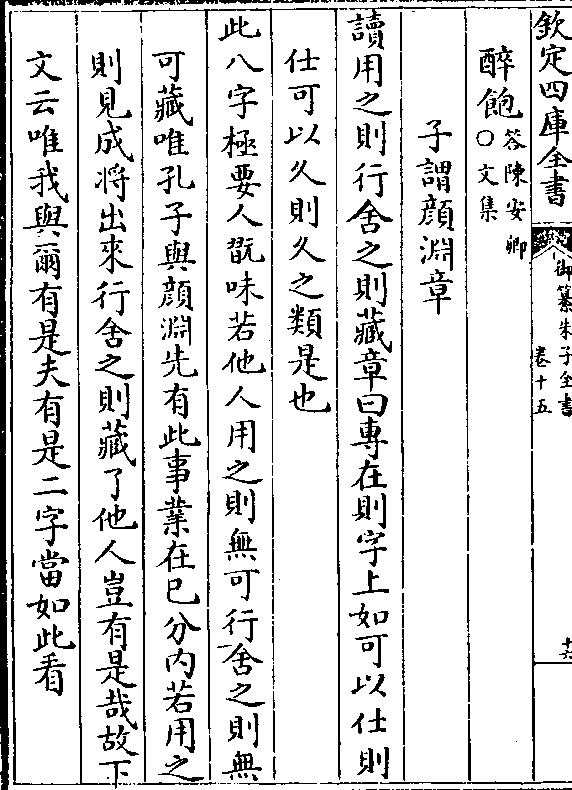 欽定四庫全書
御纂朱子全書
卷十五
十六
醉飽
答陳安卿
○文集
子謂顔淵章
讀用之則行舍之則藏章曰專在則字上如可以仕則
仕可以久則久之類是也
此八字極要人翫味若他人用之則無可行舍之則無
可藏唯孔子與顔淵先有此事業在已分内若用之
則見成將出來行舍之則藏了他人豈有是哉故下
文云唯我與爾有是夫有是二字當如此看